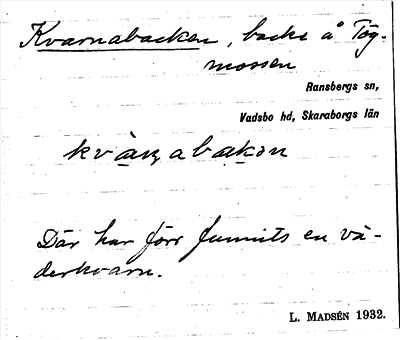 Kvarnabacken, backe å Tåg-
mossen
Ransbergs sn,
Vadsbo hd, Skaraborgs län
kvàrnabakən
Där har förr funnits en vä-
derkvarn.
L. MADSÉN 1932.